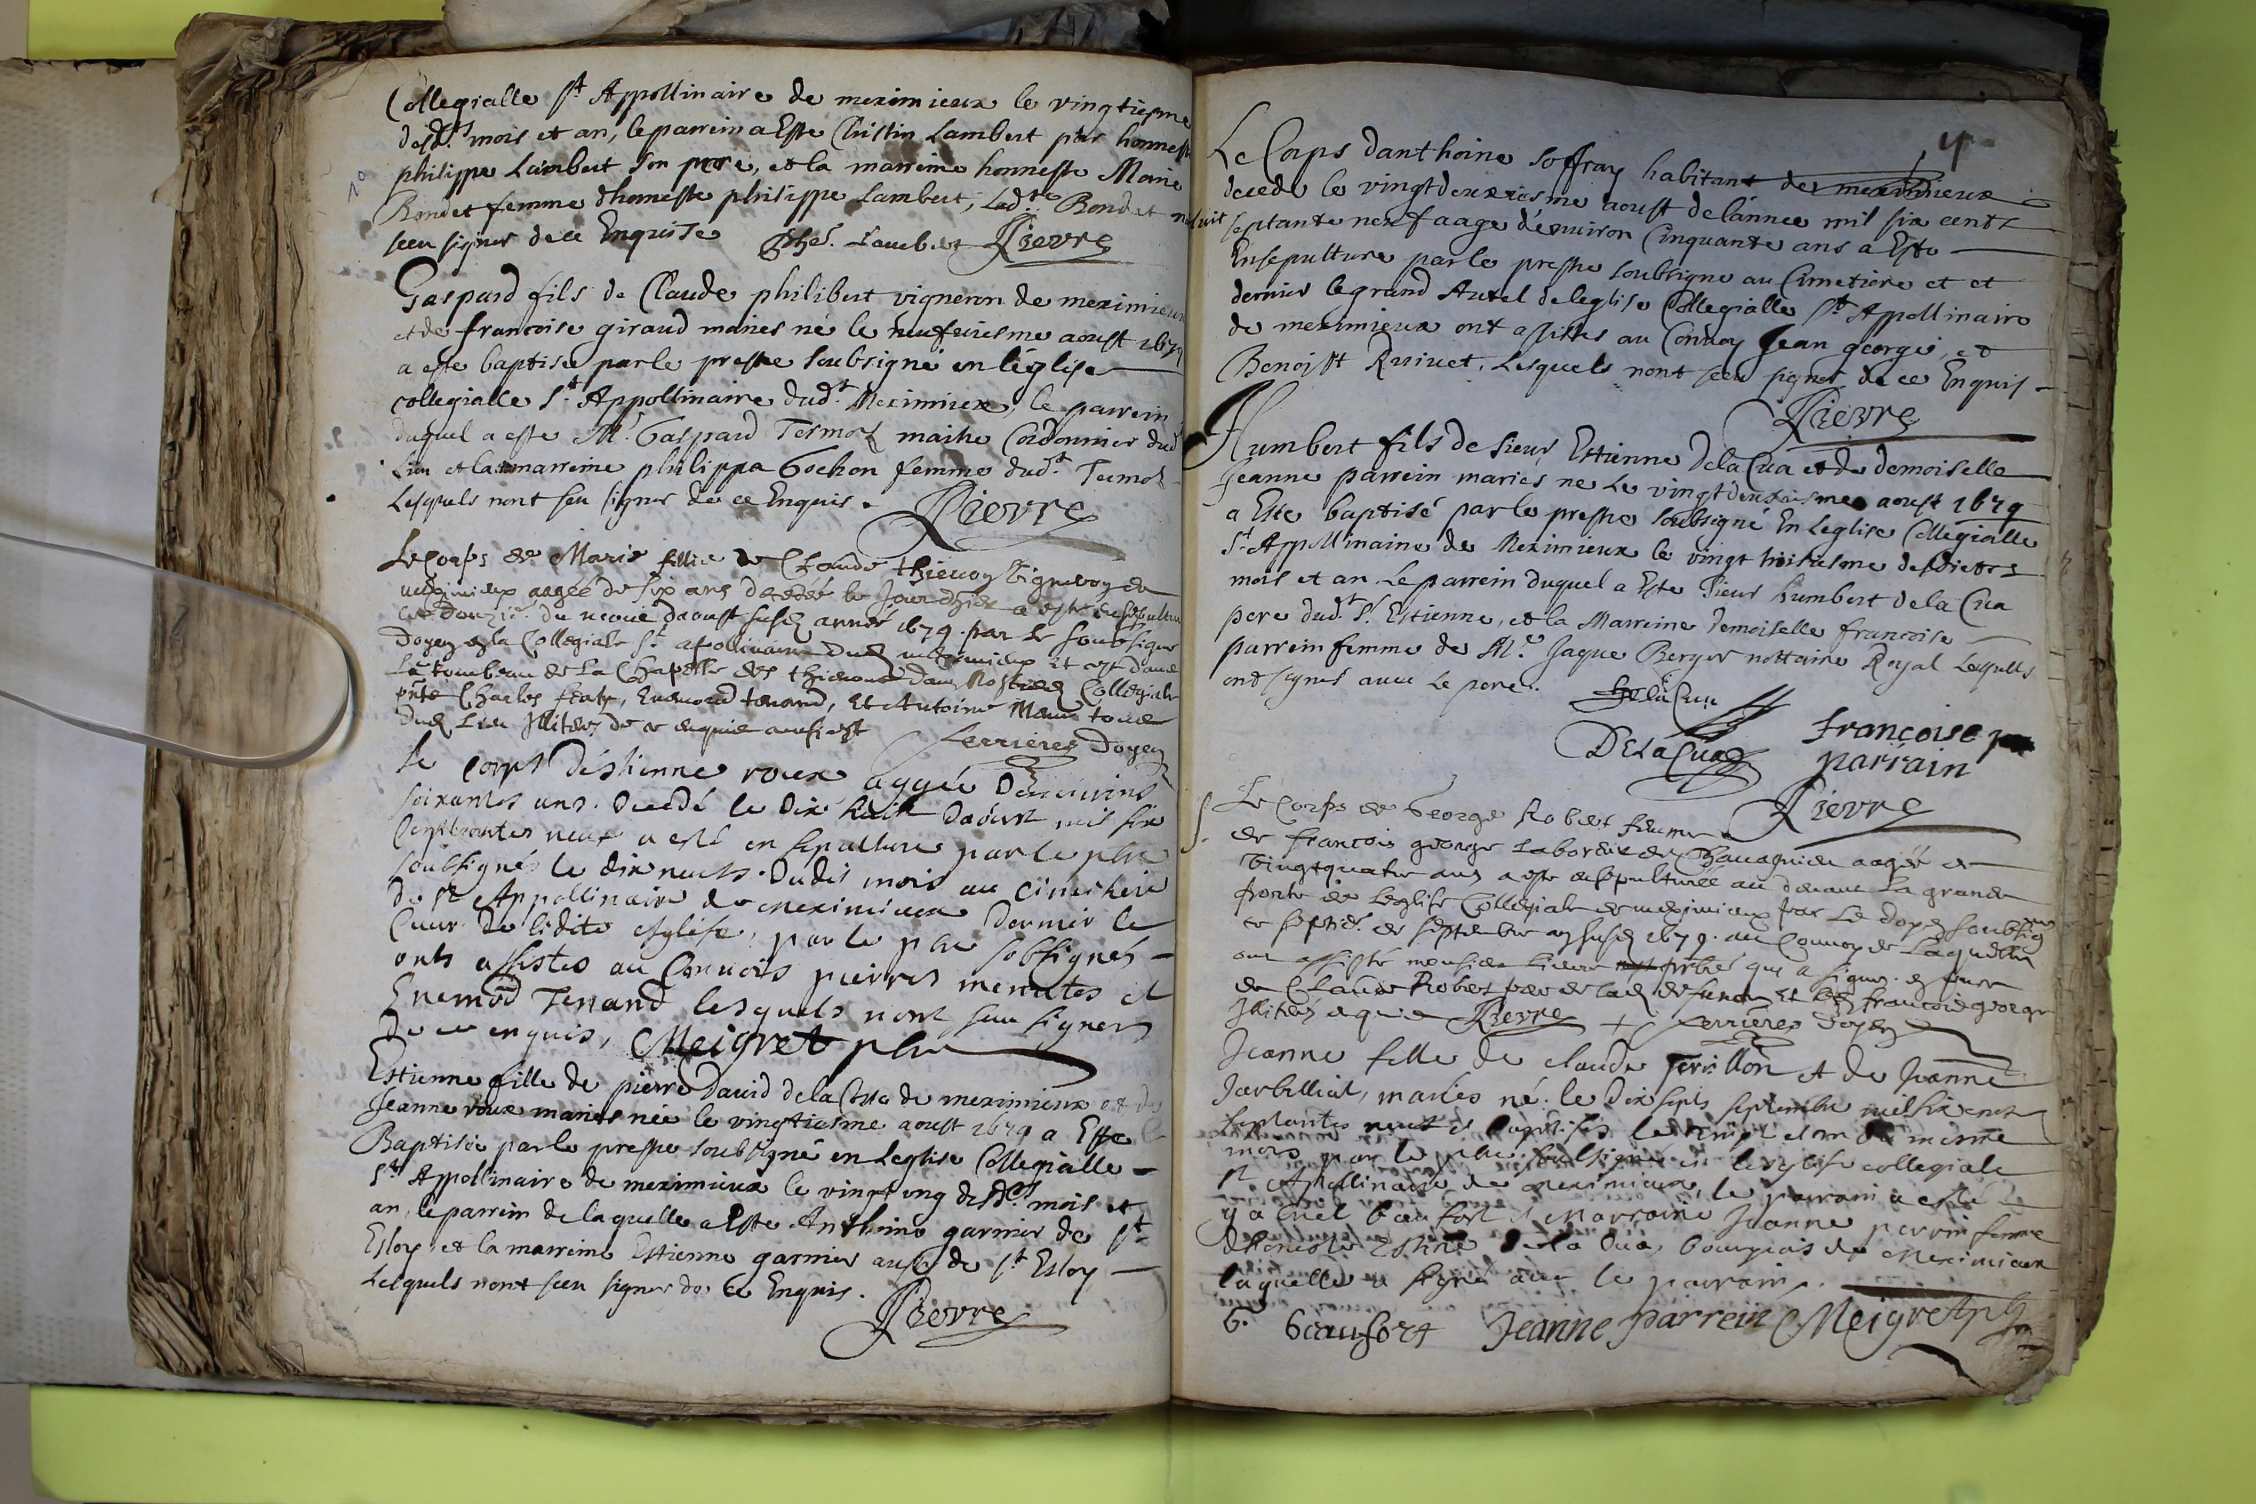 Collegialle St Appollinaire de meximieux le vingtiesme
desd.ts mois et an, le parrein a Este Christin Lambert par honneste
philippe Lambert son pere, et la marreine honneste Marie
Bondet femme d'honneste philippe Lambert, Ladte Bondet n'a
sceu signer de ce Enquise Phe. Lambert Lievre
Gaspard fils de Claude philibert vigneron de meximieux
et de francoise giraud maries né le neufviesme aoust 1679
a este baptisé par le prestre soubsigné en l'église
collegialle St Appollinaire dudt Meximieux, le parrein
duquel a este Mr. Gaspard Termoz maitre Cordonnier dud
Lieu et la marreine philippa Cochon femme dudt Termoz
Lesquels nont sceu signer de ce Enquis. Lievre
Le Corps de Marie fillie de Claude thievoz Vigneron de
meximieux aagée de six ans decedée le Jour d'hier a este ensepulturee
ce douzie. du mois daoust annee 1679. par Le soubsigne
Doyen de la Collegiale St apolinaire dud meximieux Et dans
Le tombeau de La Chapelle des thievous dans Collegiale
pnts Charles, Enemond tenand, Et Antoine tous
dud Lieu Illiteres de ce enquis Ferrieres Doyen
le corps d'éstienne roux aggée D'environs
soixantes ans. decedé le dix huit daoust mil six
septante neuf a esté en sepulture par le pbre
soubsignés le dix neufs. dudit mois au Cimetiere
de St Appollinaire de meximieux dernier le
Cueur de ladite esglise, par le pbre sobsignés
onts assistes au Convois pierres menutes et
Enemond Tenand lesquels nont sceu signer
de ce enquis, Meigret pbre
Estienne fille de pierre David de la Crua de meximieux et de
Jeanne roux maries née le vingtiesme aoust 1679 a Este
Baptisée par le prestre soubsigné en Leglise Collegialle
St Appollinaire de meximieux le vingt ung desdts mois et
an, le parrein de laquelle a Este Anthoine garnier de St
Eloy et la marreine Estienne garnier aussy de St Eloy
Lesquels nont sceu signer de ce Enquis.
Lievre
Le Corps danthoine soffray habitant de meximieux
decede le vingtdeuxiesme aoust de l'annee mil six cents
septante neuf aage d'environ Cinquante ans a Este
Ensepulture par le prestre soubsigne au Cimetiere et et
dernier le grand Autel de leglise Collegialle St Appollinaire
de meximieux ont assistes au Convoy Jean george, et
Benoistt Ruivet, Lesquels nont sceu signer de ce Enquis
Lievre
Humbert fils de sieur Estienne Dela Cua et de demoiselle
Jeanne parrein maries ne Le vingtdeuxiesme aoust 1679
a Este baptisé par le prestre soubsigné En Leglise Collegialle
St Appollinaire de Meximieux le vingt troisiesme desdicts
mois et an Le parrein duquel a Este sieur humbert de la Cua
pere dudt Sr. Estienne, et la Marreine demoiselle francoise
parrein femme de Mre Jaque Berger nottaire Royal Lesquels
ont signés avec Le pere. De la Cua
DE La Cua françoise
parrain
Lievre
Le Corps de George Robert femme
de francois george Laboreur de Chavagnieu aagée de
Vingtquatre ans a este ensepulturée au devant La grande
porte de Leglise Collegiale de meximieux par Le doyen soubsigne
ce de septembre 1679. au Convoy de Laquelle
ont assiste monsieur Lievre pretre qui a signe
de Claude Robert pere de lad defunte Et led francois george
Illiteres enquis Lievre Ferrieres Doyen
Jeanne fille de claude perillon et de Jeanne
Jarbilliat, maries né. le dix septs septembre mil six cent
septantes neuf et baptisés le du mesme
mois par le pbre. soubsigné en lesglise collegiale
St Appollinaire de meximieux, le parrain a esté
beaufort marraine Jeanne perrin femme
d'honeste Estine de la Cua, bourgeois de Meximieux
laquelle a signé avec le parrain.
G. beaufort Jeanne parrein Meigret pbre